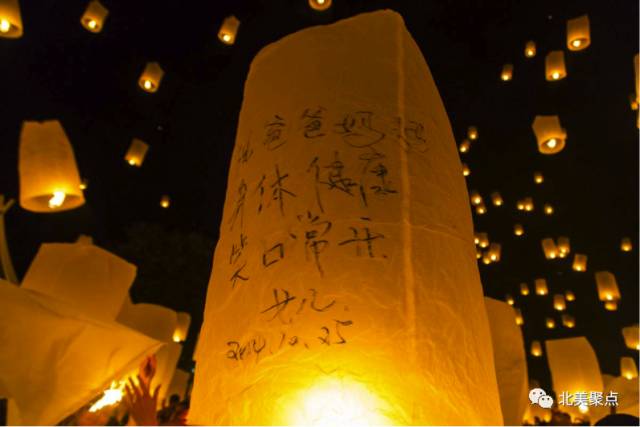 祝爸爸妈妈
身体健康
笑口常开.
女儿.
2014.10.25
北美聚点